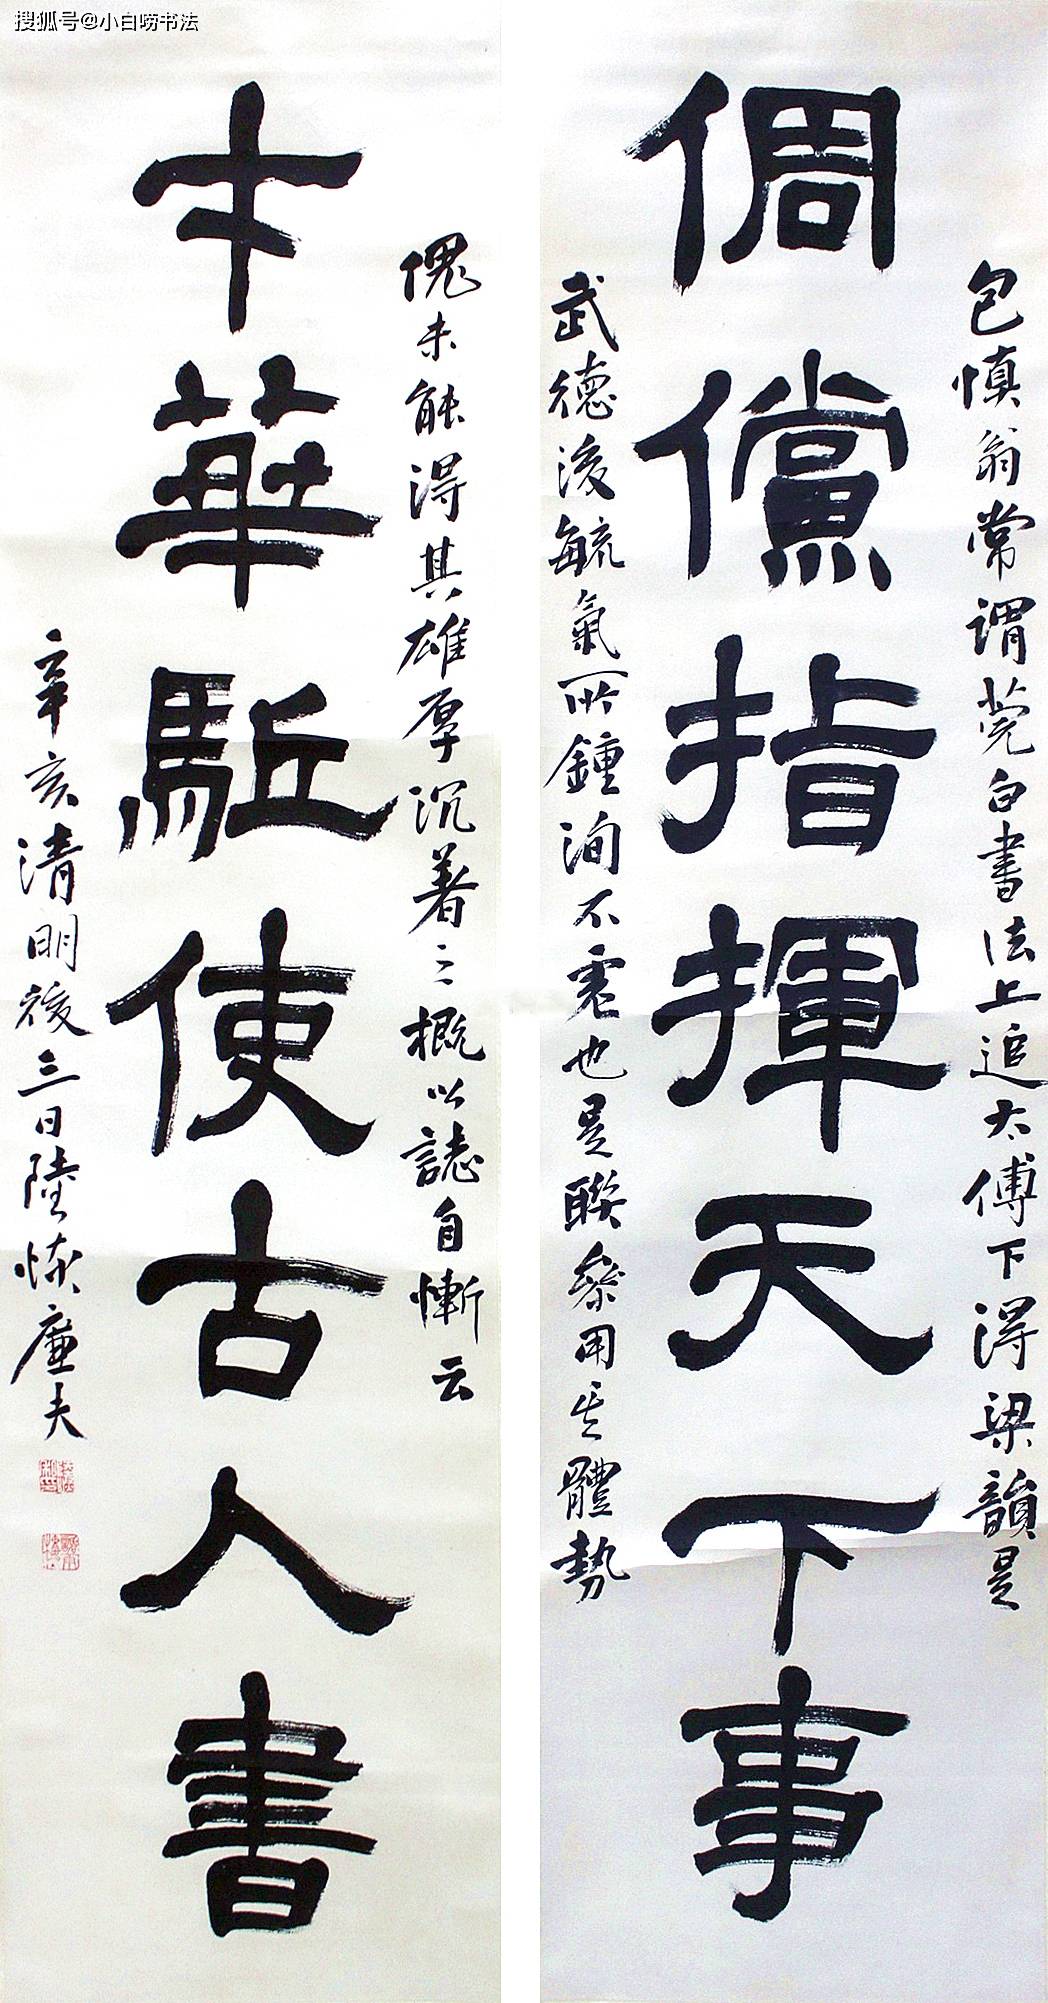 搜狐号@小白唠书法
倜儻指揮天下事
包慎翁常謂莞白書法上追太傅下得梁韻是
武德後毓氣所鍾洵不虛也是聯參用其體勢
才華駈使古人書
愧未能得其雄厚沉著之概以誌自慚云
辛亥清明後三日陸恢廉夫